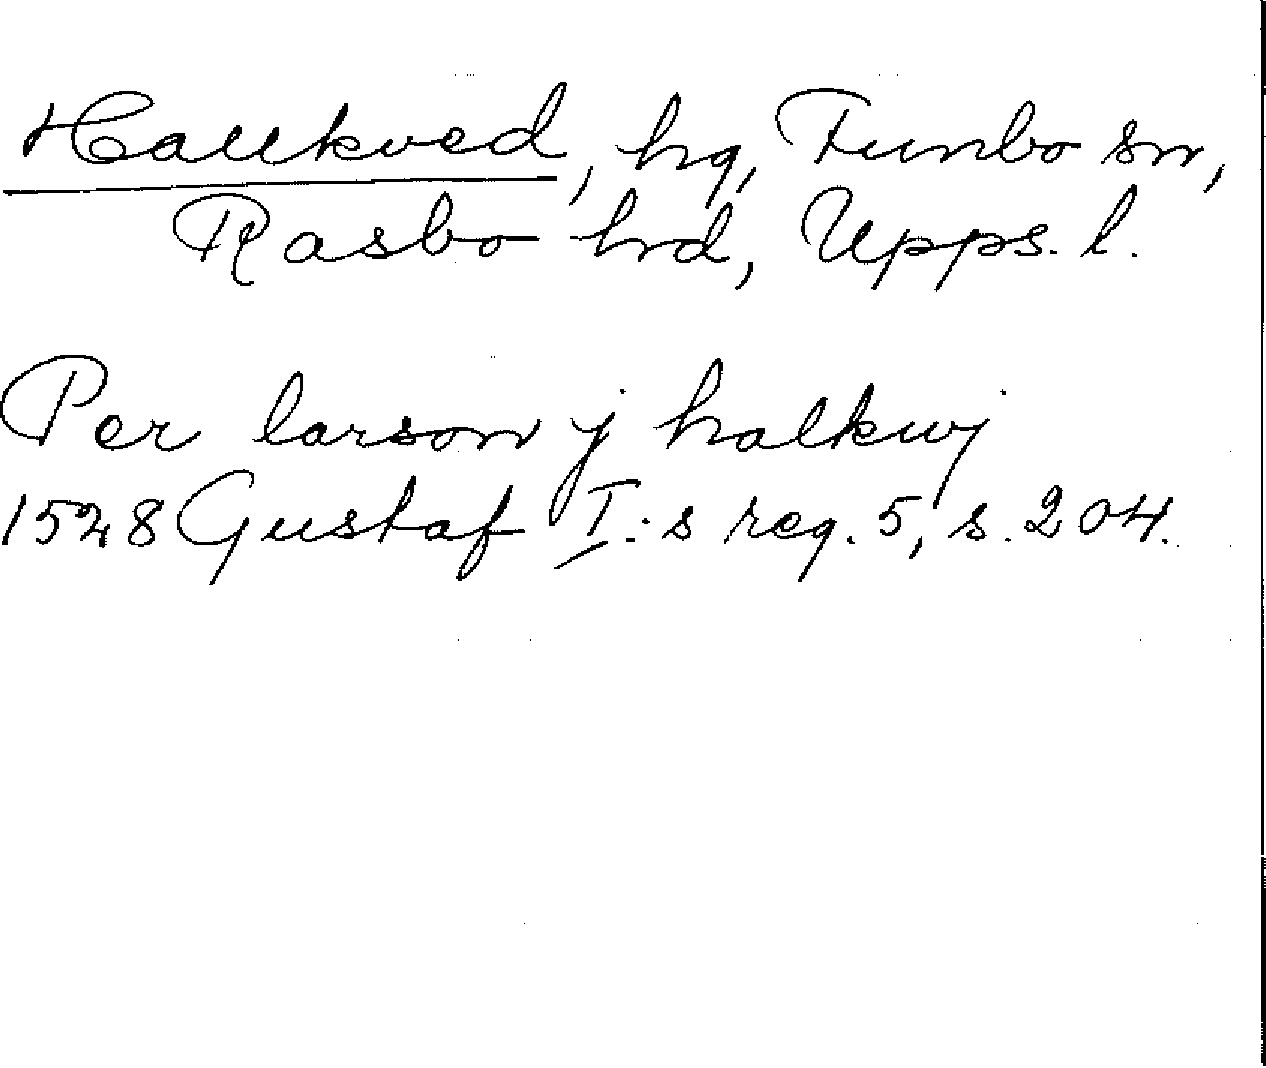 Hallkved, hg, Funbo sn,
Rasbo hd, Upps. l.
Per larson j halkwj
1528 Gustaf I:s reg. 5, s. 204.